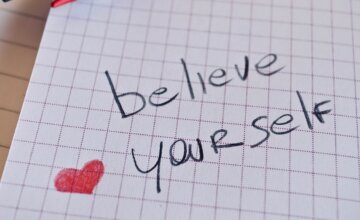 believe
yourself